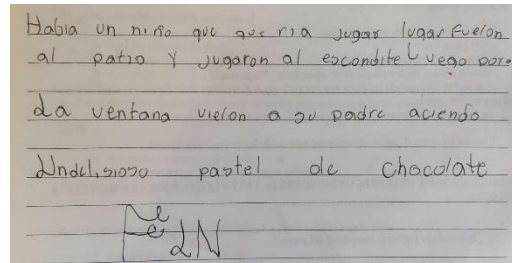 Habia un niño que queria jugar lugar Fuelon
al patio y jugaron al escondite Luego por
la ventana vielon a su padre aciendo
Un delisioso pastel de chocolate